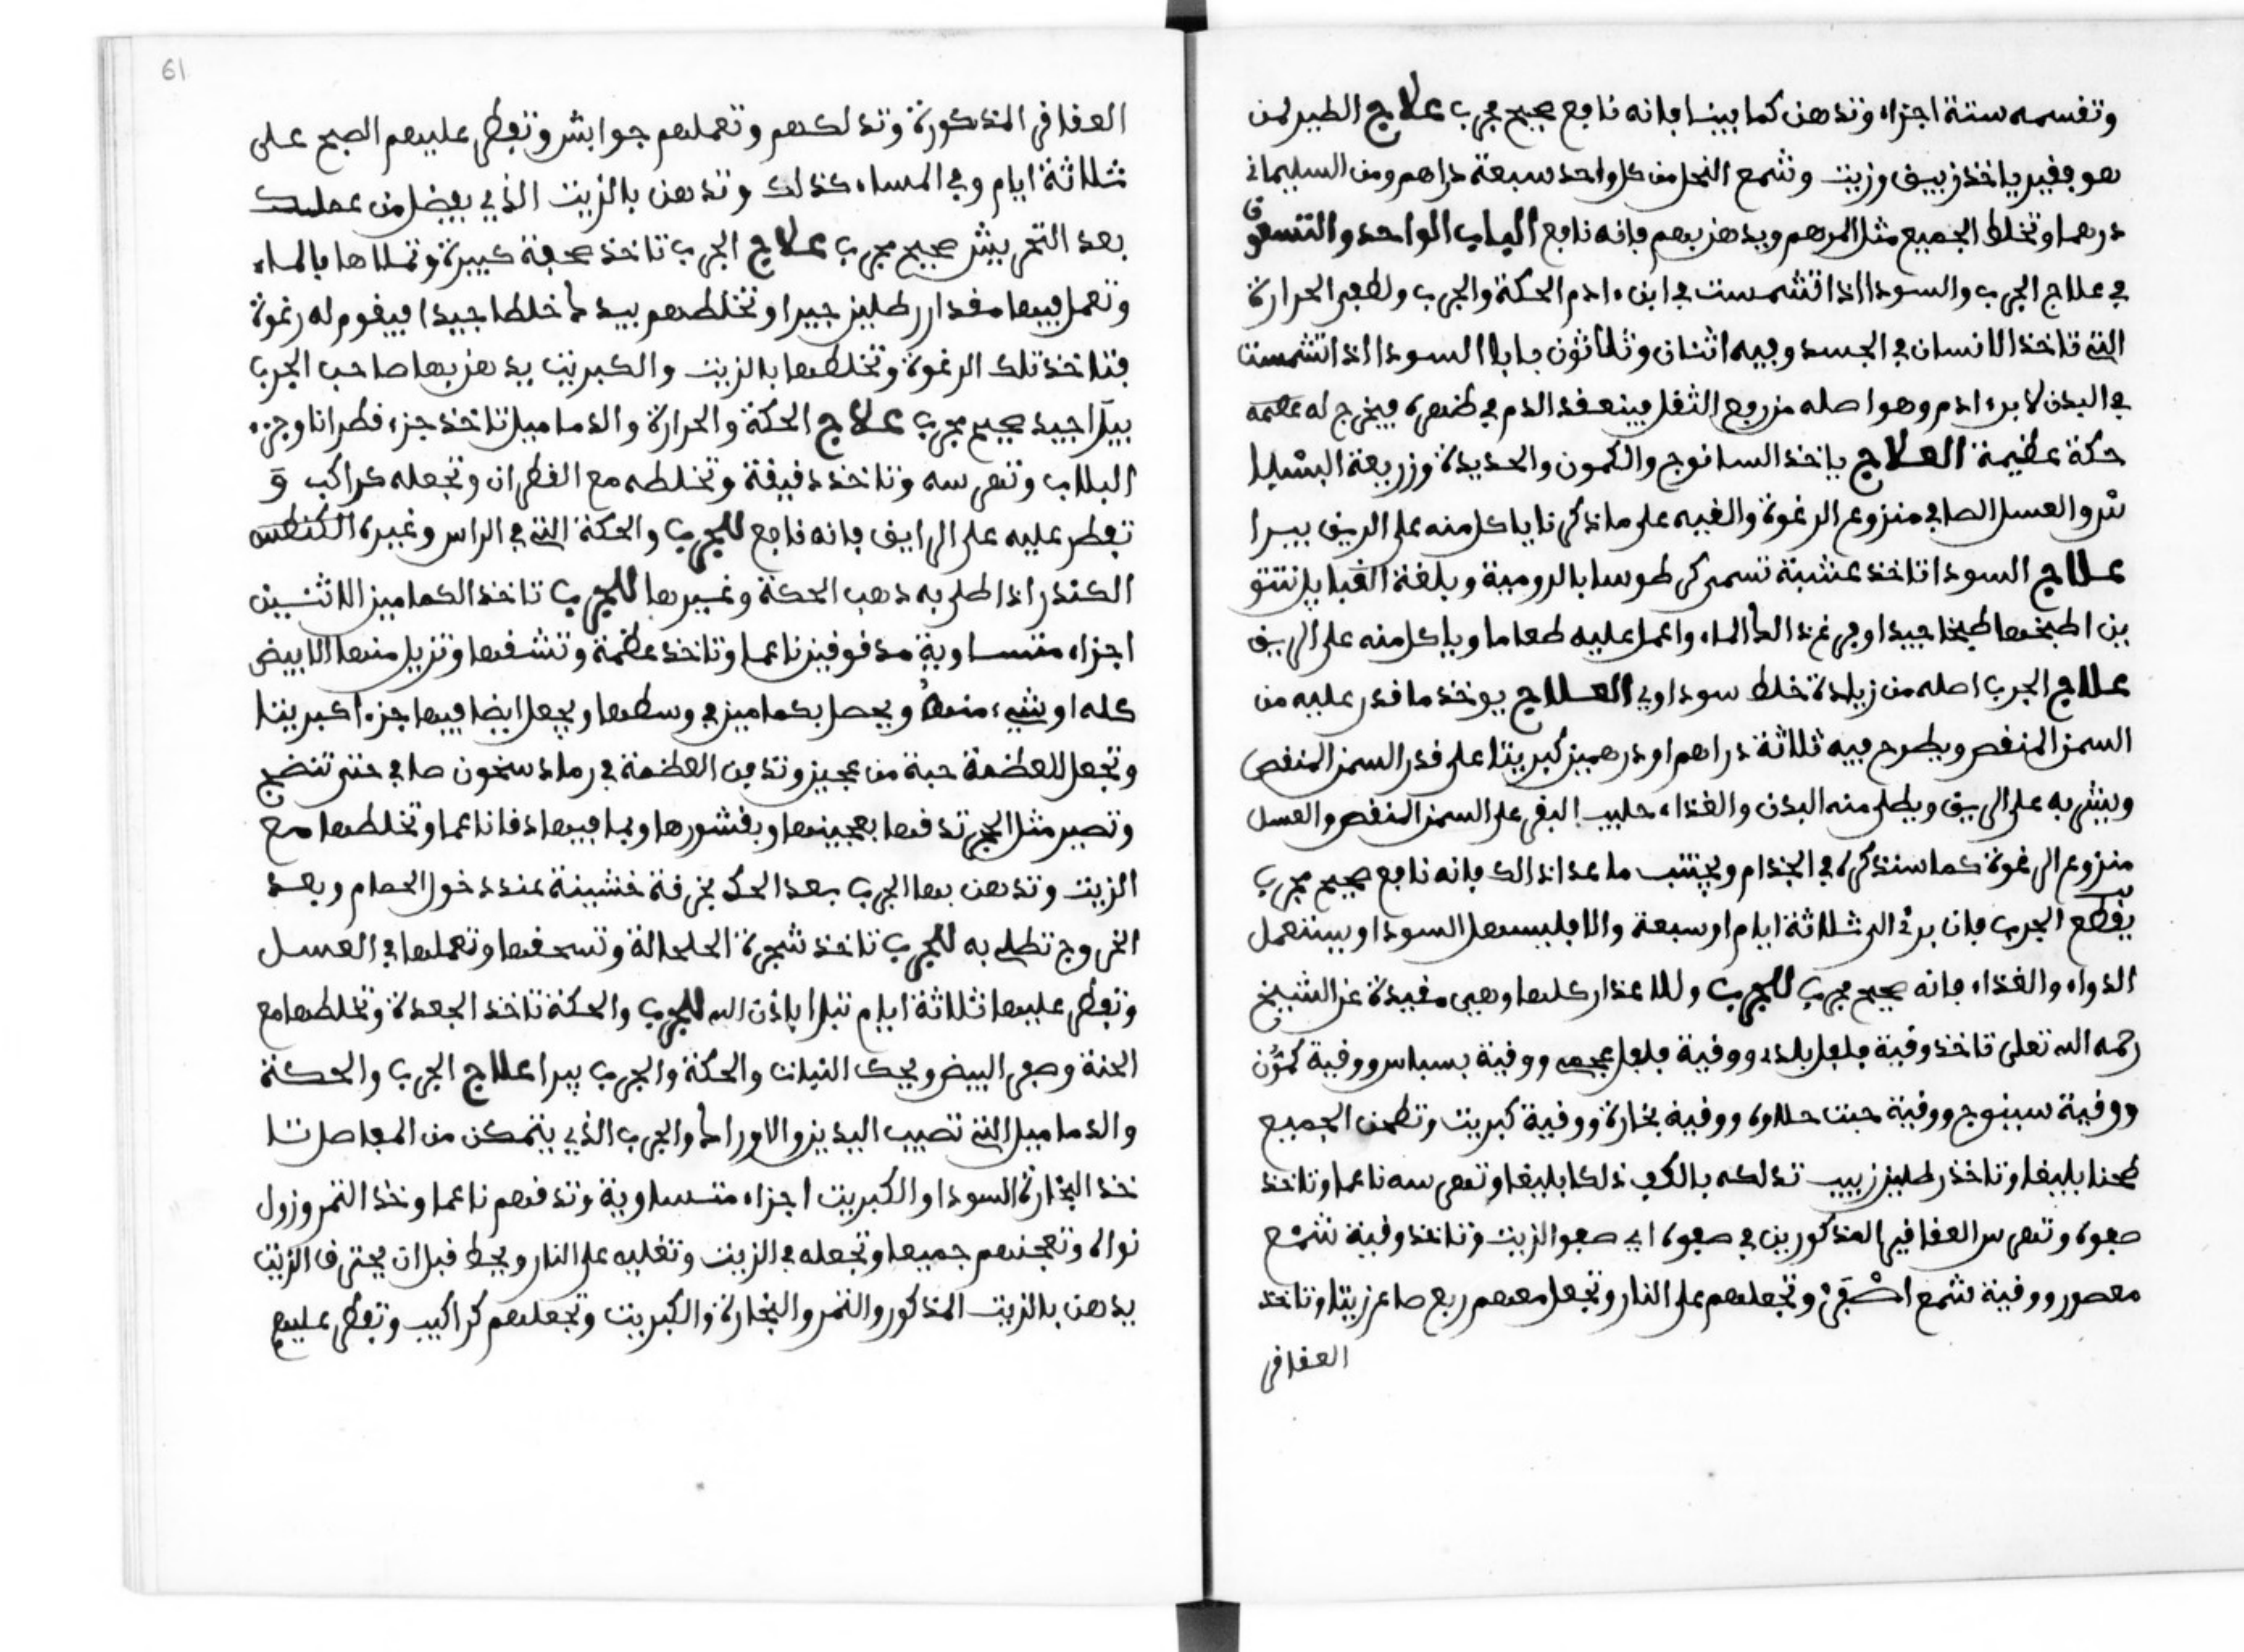 وتفسمه ستة اجزاء وتدهن كما بينا فانه نافع صحيح مجرب علاج الطيير لمن
هو ففير ياخذ زيبف وزيت وشمع النحل من كل واحد سبعة دراهم ومن السليماني
درهما وتخلط الجميع مثل المرهم ويدهن بهم فانه نافع الباب الواحد والتسعون
في علاج الجرب والسودا اذا تشمست في ابن ءادم الحكة والجرب ولطعير الحرارة
التي تاخذ الانسان في الجسد وفيه اثنان وثلاثون بابا السودا اذا تشمست
في البدن لا برء ادم وهو اصله من رفع الثفل فينعفد الدم في ظهره فيخرج له
حكة عظيمة العلاج ياخذ السانوج والكمون والحديدة وزريعة البسليا
نثر والعسل الصافي منزوع الرغوة والفيه على ما ذكرنا ياكل منه على الريف يبرا
علاج السودا تاخذ عشبة تسمى كرطوسا بالرومية وبلغة الفبايل تنتو
ين اطبخها طبخا جيدا وفي غذ الماء واعمل عليه طعاما وياكل منه على الريف
علاج الجرب اصله من زيادة خلط سوداوي العلاج يوخذ ما فدر عليه من
السمن المنفص ويطرح فيه ثلاثة دراهم او درهمين كبريتا على فدر السمن المنفص
ويشرب على الريف ويطلى منه البدن والغذاء حليب البفر على السمن المنفص والعسل
منزوع الرغوة كما سنذكره في الجذام ويجتنب ما عدا ذالك فانه نافع صحيح مجرب
يفطع الجرب فان برئ الى ثلاثة ايام او سبعة والا فليسهل السودا ويستعمل
الدواء والغذاء فانه صحيح مجرب للجرب وللاعذار كلها وهي مفيدة عن الشيخ
رحمه الله تعلى تاخذ وفية فلفل بلدي ووفية فلفل عجمي ووفية بسباس ووفية كمون
ووفية سينوج ووفية حبت حلاوة ووفية بخارة ووفية كبريت وتطحن الجميع
طحنا بليغا وتاخذ رطلين زبيب تدلكه بالكف دلكا بليغا وتهرسه ناعما وتاخذ
صفوه وتهرس العفافير المذكورين في صفوه اي صفو الزيت وتاخذ وفية شمع
معصور ووفية شمع اصفر وتجعلهم على النار وتجعل معهم ربع صاع زيتا وتاخذ
العفافر
61
العفافر المذكورة وتدلكهم وتعملهم جوابش وتفطر عليهم الصبح على
ثلاثة ايام وفي المساء كذلك وتدهن بالزيت الذي يفضل من عمليك
بعد التحريش صحيح مجرب علاج الجرب تاخذ صحفة كبيرة وتملاها بالماء
وتعمل فيها مفدار رطلين جيرا وتخلطهم بيدك خلطا جيدا فيفوم له رغوة
فتاخذ تلك الرغوة وتخلطها بالزيت والكبريت يدهن بها صاحب الجرب
يبرا جيد صحيح مجرب علاج الحكة والحرارة والدماميل تاخذ جزء فطرانا وجزء
البلاب وتهرسه وتاخذ دفيفة وتخلطه مع الفطران وتجعله كراكب و
تفطر عليه على الرايف فانه نافع للجرب والحكة التي في الراس وغيره الكنطس
الكندر اذا طلي به ذهب الحكة وغيرها للجرب تاخذ الكماميز الاثنين
اجزاء متساوية مدفوفين ناعما وتاخذ عظمة وتشفها وتزيل منها الابيض
كله او شيء منه ويحصل بكماميز في وسطها ويجعل ايضا فيها جزءا كبريتا
وتجعل للعظمة حبة من عجين وتدفن العظمة في رماد سخون صافي حتى تنضج
وتصير مثل الحجر تدفها بعجينها وبفشورها وبما فيها دفا ناعما وتخلطها مع
الزيت وتدهن بها الجرب بعد الحك بخرفة خشينة عند دخول الحمام وبعد
الخروج تطلي به للجرب تاخذ شجرة الحلحالة وتسحفها وتعملها في العسل
وتفطر عليها ثلاثة ايام تبرا باذن الله للجرب والحكة تاخذ الجعدة وتخلطها مع
الحنة وصفر البيض ويحك النبات والحكة والجرب يبرا علاج الجرب والحكة
والدماميل التي تصيب اليدين والاوراك والجرب الذي يتمكن من المفاصل تا
خذ البخارة السودا والكبريت اجزاء متساوية وتدفهم ناعما وخذ التمر وزول
نواه وتعجنهم جميعا وتجعله في الزيت وتغليه على النار ويحط فبل ان يحترف الزيت
يدهن بالزيت المذكور والتمر والبخارة والكبريت وتجعلهم كراكيب وتفطر عليهم